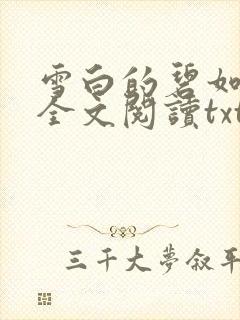 雪白的碧如
全文閱讀txt
三千大夢叙平